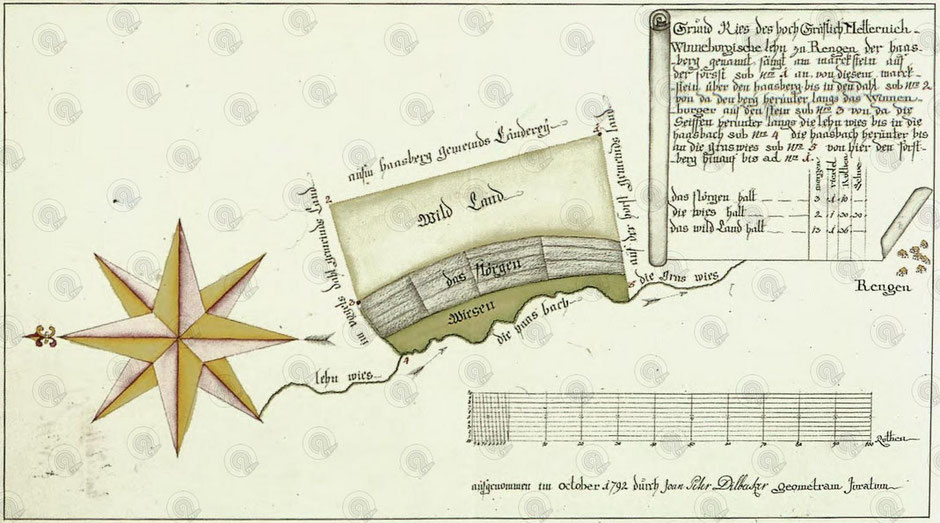 Grund Ries des hoch Gräflich Metternich-
Winneburgische lehn zu Rengen der haas-
berg genannt fängt am marckstein auf
der forsst sub Nro 1 an von diesem marck-
stein über den haasberg bis in den dahl sub Nro 2
von da den berg herunter langs das Winnen-
burger auf den stein sub Nro 3 von da die
Seiffen herunter langs die lehn wies bis in die
haasbach sub Nro 4 die haasbach herunter bis
an die gras wies sub Nro 5 von hier den forst-
berg hinauf bis ad Nro 1.
morgen
viertel
Rothen
das flörgen halt 3 1 10
die wies halt 2 1 30 30
das wild Land halt 13 1 06
Rengen
aufm haasberg gemeinds Länderey
auf der forst gemeinds land
wild Land
das flörgen
Wiesen
die haas bach
die gras wies
lehn wies
4
10 20 30 40 50 60 70 80 90 100
Rothen
aufgenommen im October 1792 durch Joan Peter Dilbecker geometram Juratum